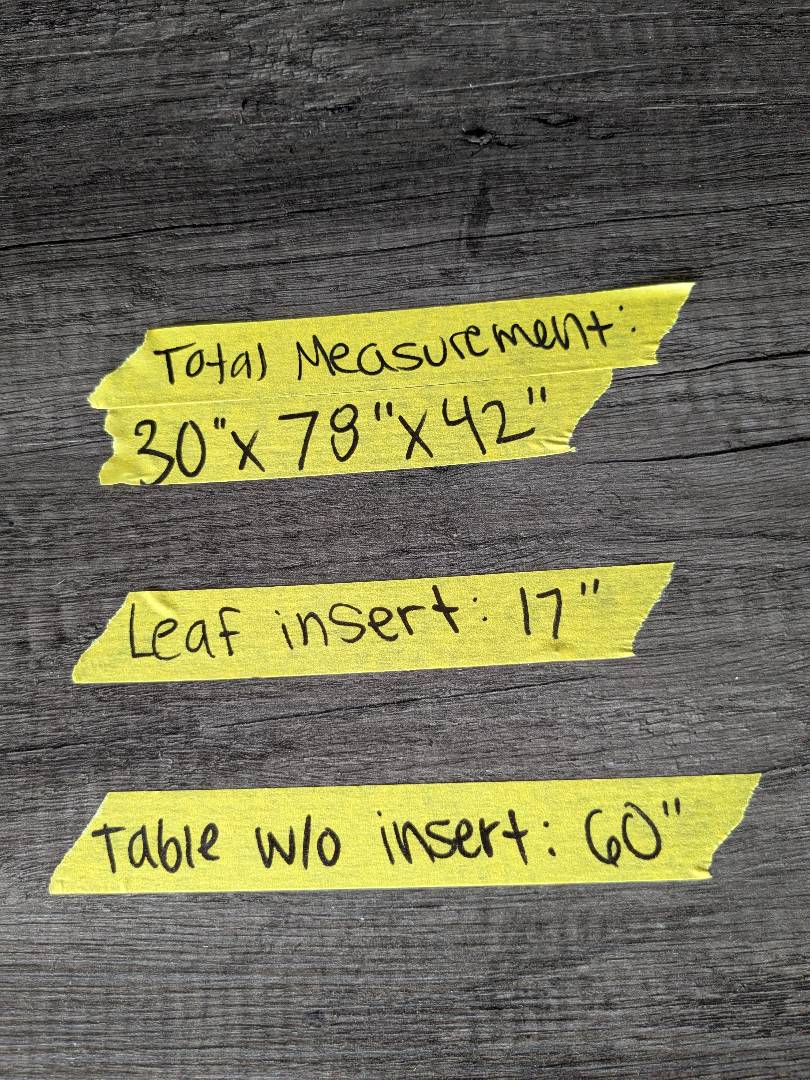 Total Measurement:
30"x 78"x 42"
Leaf insert: 17"
Table w/o insert: 60"